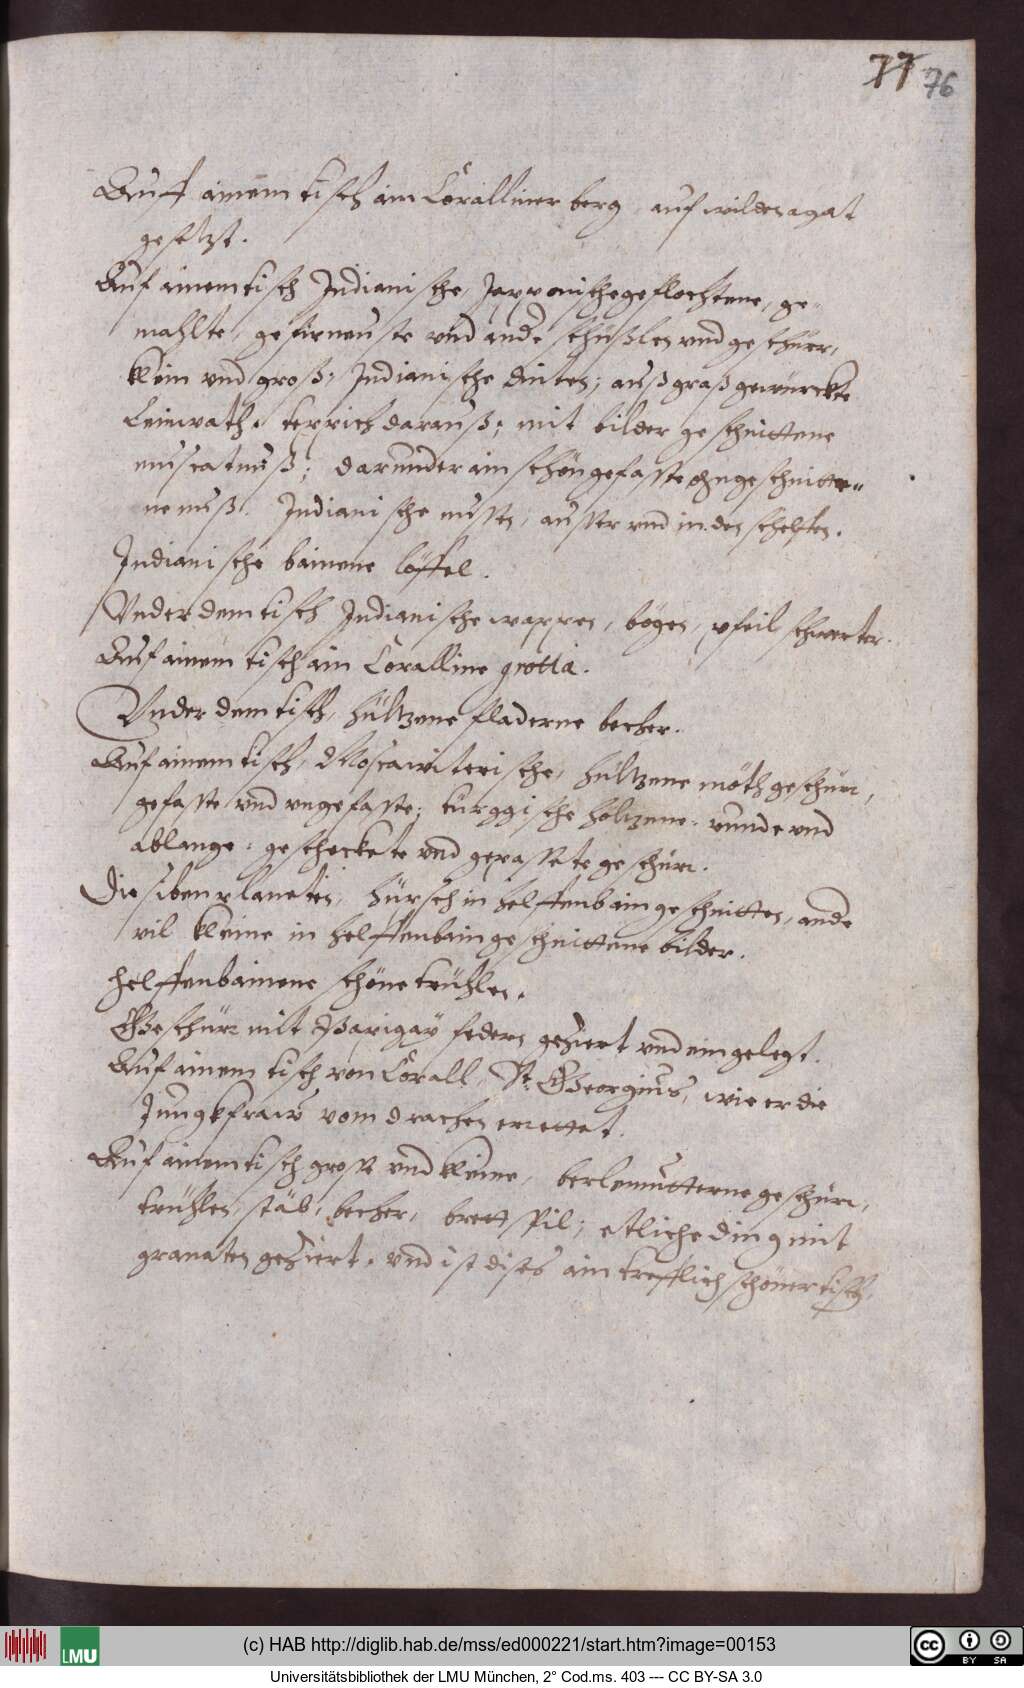 77 76
Auff ainem tisch ain Coralliner berg, auf wilden agat
gesetzt.
Auf ainem tisch Indianische, Japponische geflochtene, ge-
mahlte, gefirneuste vnd ande schüßlen vnd geschürr,
klein vnd groß; Indianische dinten; auß graß gewürckte
Leinwath. teppich darauß; mit bilder geschnittene
muscatnuß; darunder ain schön gefasste ohngeschnitte-
ne nuß. Indianische nussen, ausser vnd in den schelften.
Indianische bainene löffel.
Vnder dem tisch Indianische wappen, bögen, pfeil, schwerter.
Auf ainem tisch ain Coralline grotta.
Vnder dem tisch, hültzene fladerne becher.
Auf ainem tisch, Moscawiterische, hültzene möth geschürr,
gefasste vnd vngefasste; türggische höltzene, runde vnd
ablange, gescheckete vnd gepasste geschürr.
Die siben planeten, hürsch in helffenbain geschnitten, ande
vil kleine in helffenbain geschnittene bilder.
helffenbainene schöne trühlen.
Geschürr mit Papigay federn geziert vnd eingelegt.
Auf ainem tisch von Corall, St. Georgius, wie er die
Jungkfraw vom drachen errettet.
Auf ainem tisch grosse vnd kleine, berlemutterne geschürr,
trühlen, stäb, becher, brett spil; etliche ding mit
granaten geziert, vnd ist dises ain trefflich schöner tisch.
(c) HAB http://diglib.hab.de/mss/ed000221/start.htm?image=00153
LMU
CC BY SA
Universitätsbibliothek der LMU München, 2° Cod.ms. 403 --- CC BY-SA 3.0